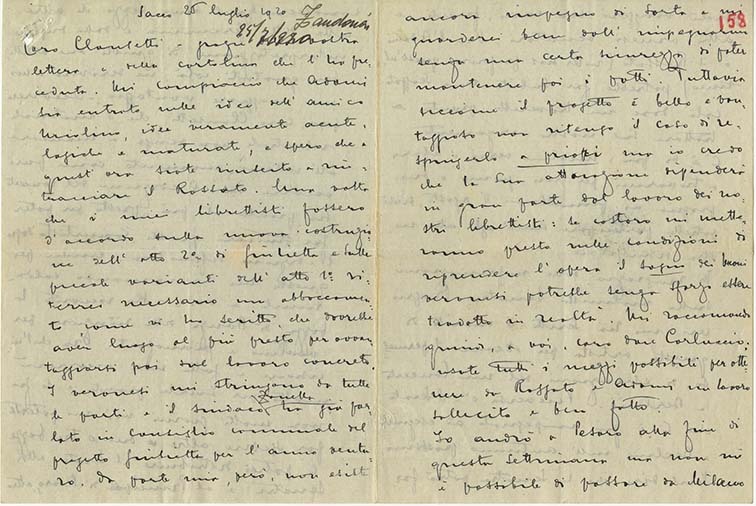 Sacco 26 luglio 1920 Zandonai
29/7/1920
Caro Clausetti – grazie vostra
lettera e della cartolina che l'ha pre-
ceduta. Mi compiaccio che Adami
sia entrato nelle idee dell'amico
idee veramente acute,
logiche e maturate; e spero che a
quest'ora siate riuscito a rin-
tracciare il Rossato. Una volta
che i miei librettisti fossero
d'accordo sulla nuova costruzio-
ne dell'atto 2º di Giulietta e sulle
piccole varianti dell'atto 1º ri-
terrei necessario un abboccamen-
to come vi ho scritto, che dovrebbe
aver luogo al più presto per avvan-
taggiarsi poi sul lavoro concreto.
I veronesi mi stringono da tutte
le parti e il sindaco Zanella ha già par-
lato in Consiglio comunale del
progetto Giulietta per l'anno ventu-
ro. Da parte mia, però, non esiste
158
ancora impegno di sorta e mi
guarderei bene dall'impegnarmi
senza una certa sicurezza di poter
mantenere poi i fatti. Tuttavia
siccome il progetto è bello e van-
taggioso non ritengo il caso di re-
spingerlo a priori ma io credo
che la sua attuazione dipenderà
in gran parte dal lavoro dei no-
stri librettisti: se costoro mi mette-
ranno presto nelle condizioni di
riprendere l'opera il sogno dei buoni
veronesi potrebbe senza sforzo essere
tradotto in realtà. Mi raccomando
quindi, a voi, caro don Carluccio;
usate tutti i mezzi possibili per otte-
nere da Rossato e Adami un lavoro
sollecito e ben fatto.
Io andrò a Pesaro alla fine di
questa settimana ma non mi
è possibile di passare da Milano